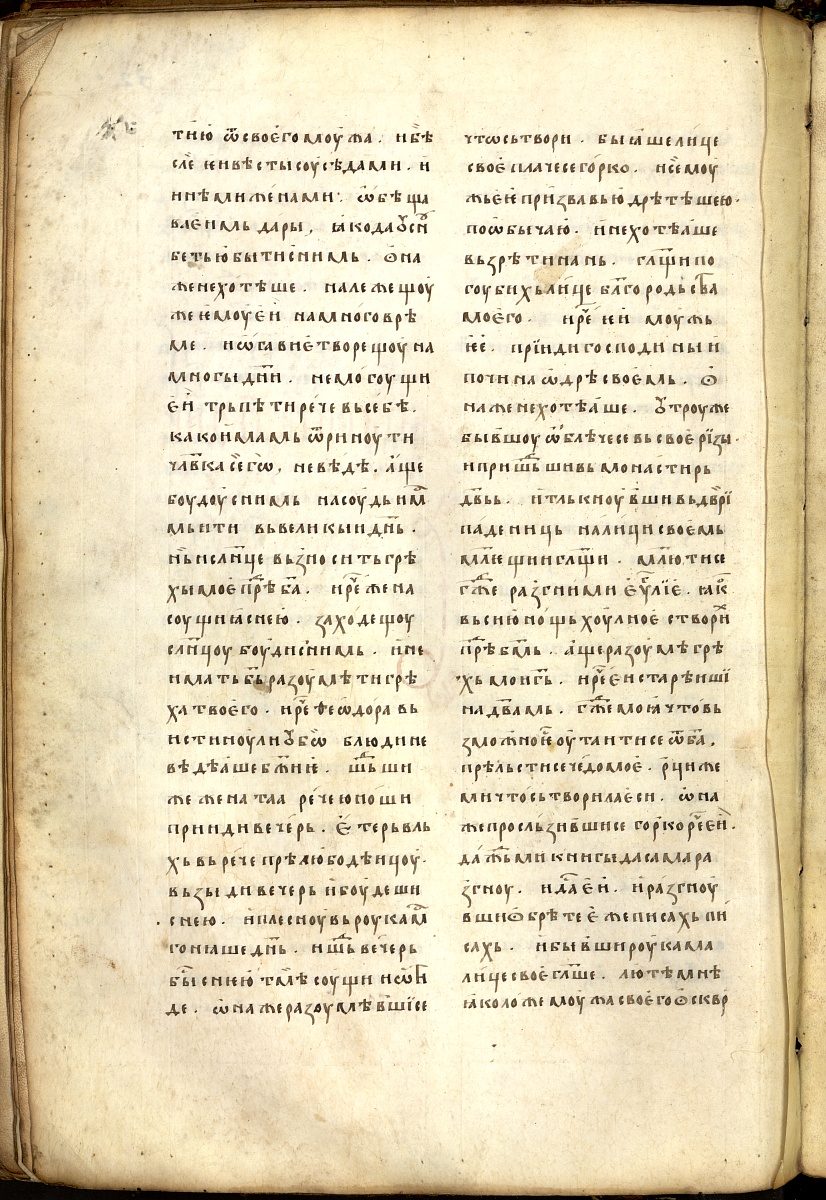 тїю ѿ своѐго моу́жа . и бѣ
слѐ ѥи вѣсты соусѣдами . и
инѣми женами . ѡбѣща
влѥимь дары , ꙗко да ѹсп
беть ю быти с нимь . ѻна
же не хотѣше . належещоу
же ѥмоу ѥи на много врѣ
ме . и ѡгавиѥ творещоу на
многы дн҃и . не могоущи
ѥи трьпѣти рече вь себѣ .
како имамь ѿриноути
чл҃вка сего̀ , не вѣдѣ . аще
боудоу с нимь на соудь им
мь ити вь великыи дн҃ь .
нь и слн҃це вьзноситьгрѣ
хы моѥ прѣ б҃а . и рече жена
соущиа с нею . заходещоу
слн҃цоу боуди с нимь . и не
имать б҃ь разоумѣти грѣ
ха твоего . и рече ѳеѡдора вь
истиноу ли ѹбѡ блюди не
вѣдѣаше б҃жиѥ . шьⷣши
же жена таа рече юноши
прииди вечерь . ѥтерь вль
хь вьрече прѣлюбодѣицоу .
вьзыди вечерь и боудеши
с нею . и плесноувь роукам
гонꙗше дн҃ь . и шьⷣ вечерь
быⷭ с нею тмѣ соущи и ѡⷮи
де . ѡна же разоумѣвшїсе
что сьтвори . быꙗше лице
своѥ плачесе горко . и семоу
жь ѥѥ призвавь ю дрѣтѣшею .
по ѡбычаю . и не хотѣаше
вьзрѣти на нь . гл҃щи по
гоубихь лице бл҃городьства
моѥго . и рече ѥи моужь
ѥѥ . прїиди господи ны и
почи на ѡдрѣ своѥмь . ѻ
на же не хотѣаше . ѹтроу же
бывшоу ѡблѣчесе вь своѥ рїзы .
и пришьⷣшивь монастирь
двь . и тлькноувши вь двⷬ҇ї
паде ниць на лици своѥмь
млещи и гл҃щи . млю ти се
гжⷭе разгни ми ѥѵⷢлїѥ . ꙗкⷪ
вь сию нощь хоулноѥ створих
прѣⷣ б҃мь . аще разоумѣ грѣ
хь мои г҃ь . и рече ѥи старѣиши
на двамь . гжⷭе моꙗ что вь
зможно ѥⷭ оутаитисе ѿ б҃а ,
прѣльстисе чедо моѥ . рци же
ми что сьтворила ѥси . ѡна
же просльзившисе горко рече ѥи .
даждь ми книгы да сама ра
згноу . и да ѥи . и разгноу
вши ѻбрѣте ѥже писахь пи
сахь . и бывши роукама
лице своѥ гл҃ше . лютѣ мнѣ
ꙗко ложе моужа своѥго ѻсквр